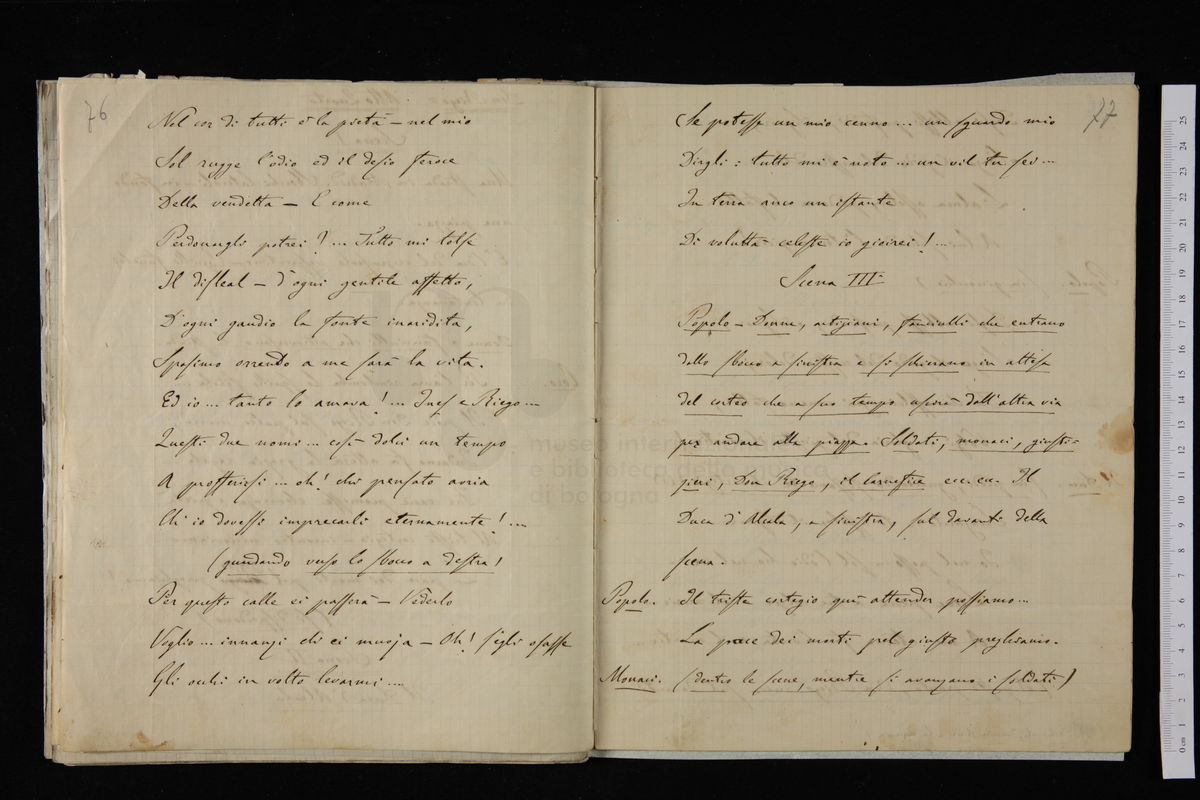 76
Nel cor di tutti è la pietà – nel mio
Sol rugge l'odio ed il desio feroce
Della vendetta – E come
Perdonargli potrei? ... Tutto mi tolse
Il disleal – d'ogni gentile affetto,
D'ogni gaudio la fonte inaridita,
Spasimo orrendo a me sarà la vita.
Ed io ... tanto lo amava! ... Ines e Riego ...
Questi due nomi ... così dolci un tempo
A profferirsi ... oh! chi pensato avria
Ch'io dovessi imprecarli eternamente! ...
(guardando verso lo sbocco a destra)
Per questo calle ei passerà – Vederlo
Voglio ... innanzi ch'ei muoja – Oh! s'egli osasse
Gli occhi in volto levarmi ...
77
Se potesse un mio cenno ... un sguardo mio
Dirgli: tutto mi è noto ... un vil tu sei ...
In terra anco un istante
Di voluttà celeste io gioirei! ...
Scena III
Popolo – Donne, artigiani, fanciulli che entrano
dallo sbocco a sinistra e si schierano in attesa
del corteo che a suo tempo uscirà dall'altra via
per andare alla piazza. Soldati, monaci, giusti=
zieri, Don Riego, il carnefice ecc. ecc. Il
Duca d'Alcala, a sinistra, sul davanti della
scena.
Popolo. Il triste corteggio quì attender possiamo ...
La pace dei morti pel giusto preghiamo.
Monaci. (dentro le scene, mentre si avanzano i soldati)
museo internazionale
e biblioteca della musica
di bologna
0 cm 1 2 3 4 5 6 7 8 9 10 11 12 13 14 15 16 17 18 19 20 21 22 23 24 25